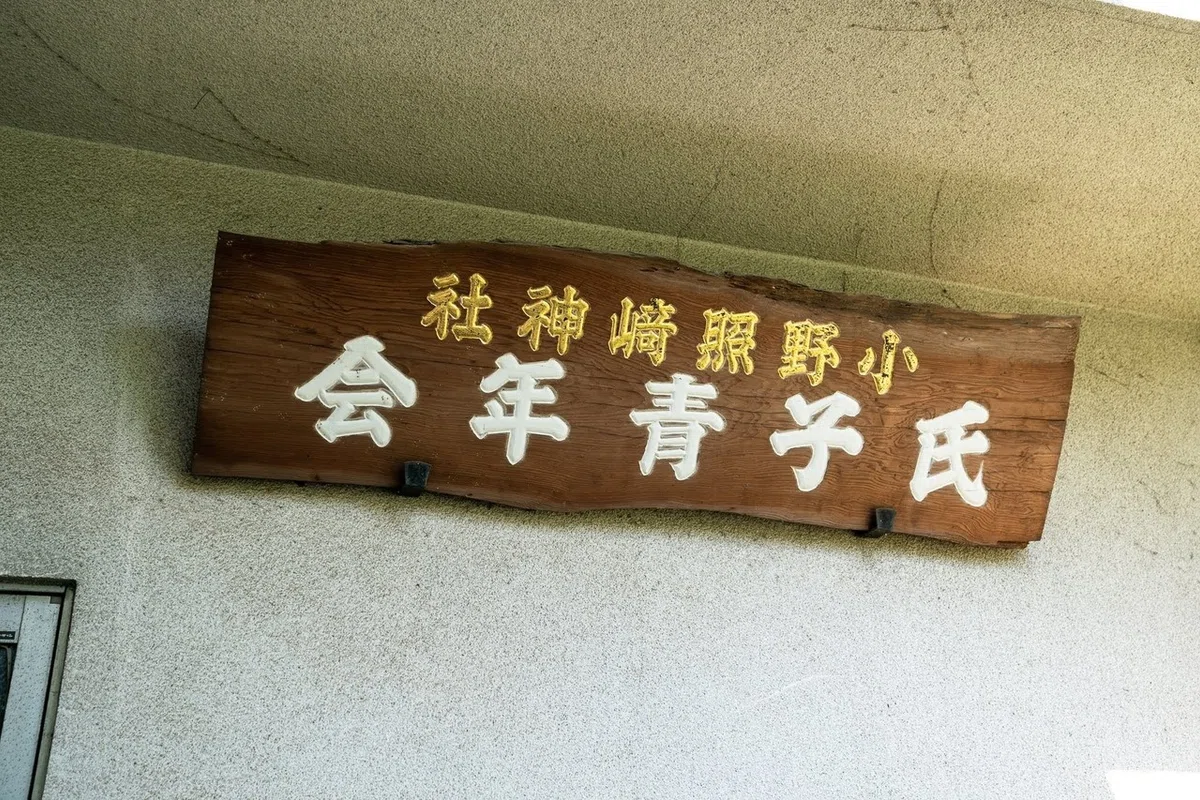 小野照崎神社
氏子青年会